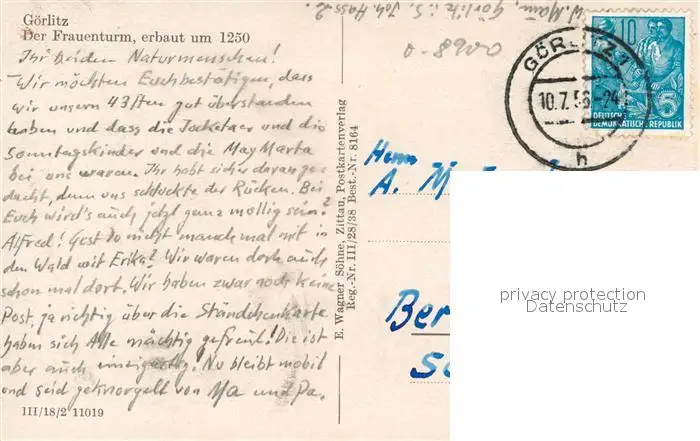 Görlitz
Der Frauenturm, erbaut um 1250
Ihr beiden Naturmenschen!
Wir möchten Euch bestätigen, dass
wir unsern 43sten gut überstanden
haben und dass die und die
Sonntagskinder und die May Marta
bei uns waren. Ihr habt sicher daran ge-
dacht, denn uns der Rücken. Bei
Euch wird's auch jetzt ganz mollig sein?
Alfred! Gest Du nicht manchmal mit in
den Wald mit Erika? Wir waren doch auch
schon mal dort. Wir haben zwar noch keine
Post, ja richtig über die Ständchenkarte
haben sich Alle mächtig gefreut! Die ist
aber auch einzigartig! Nu bleibt mobil
und seid geknorgelt von Ma und Pa.
III/18/2 11019
E. Wagner Söhne, Zittau, Postkartenverlag
Reg.-Nr. III/28/38 Best.-Nr. 8164
Görlitz i. S. Joh. Hass
GÖRLITZ 1
10.7.56.-24
h
10
5
DEUTSCHE
DEMOKRATISCHE REPUBLIK
Herrn
A. M
Ber
privacy protection
Datenschutz